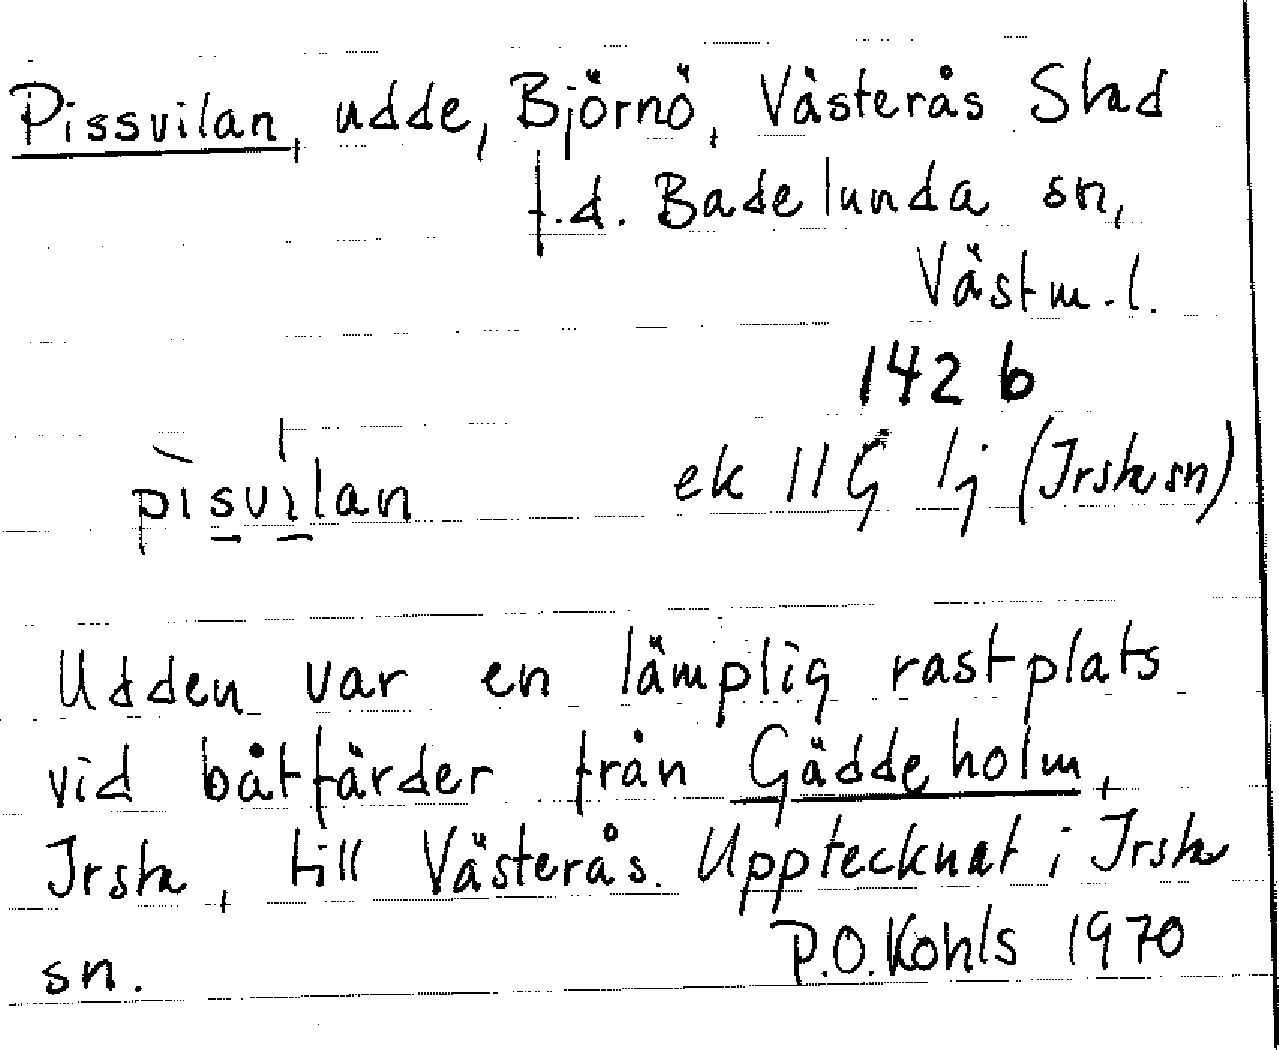 Pissvilan, udde, Björnö, Västerås Stad
f.d. Badelunda sn,
Västm.l.
142 b
pisvilan ek 11G 1j (Irsta sn)
Udden var en lämplig rastplats
vid båtfärder från Gäddeholm,
Irsta, till Västerås. Upptecknat i Irsta
sn. P.O. Kohls 1970